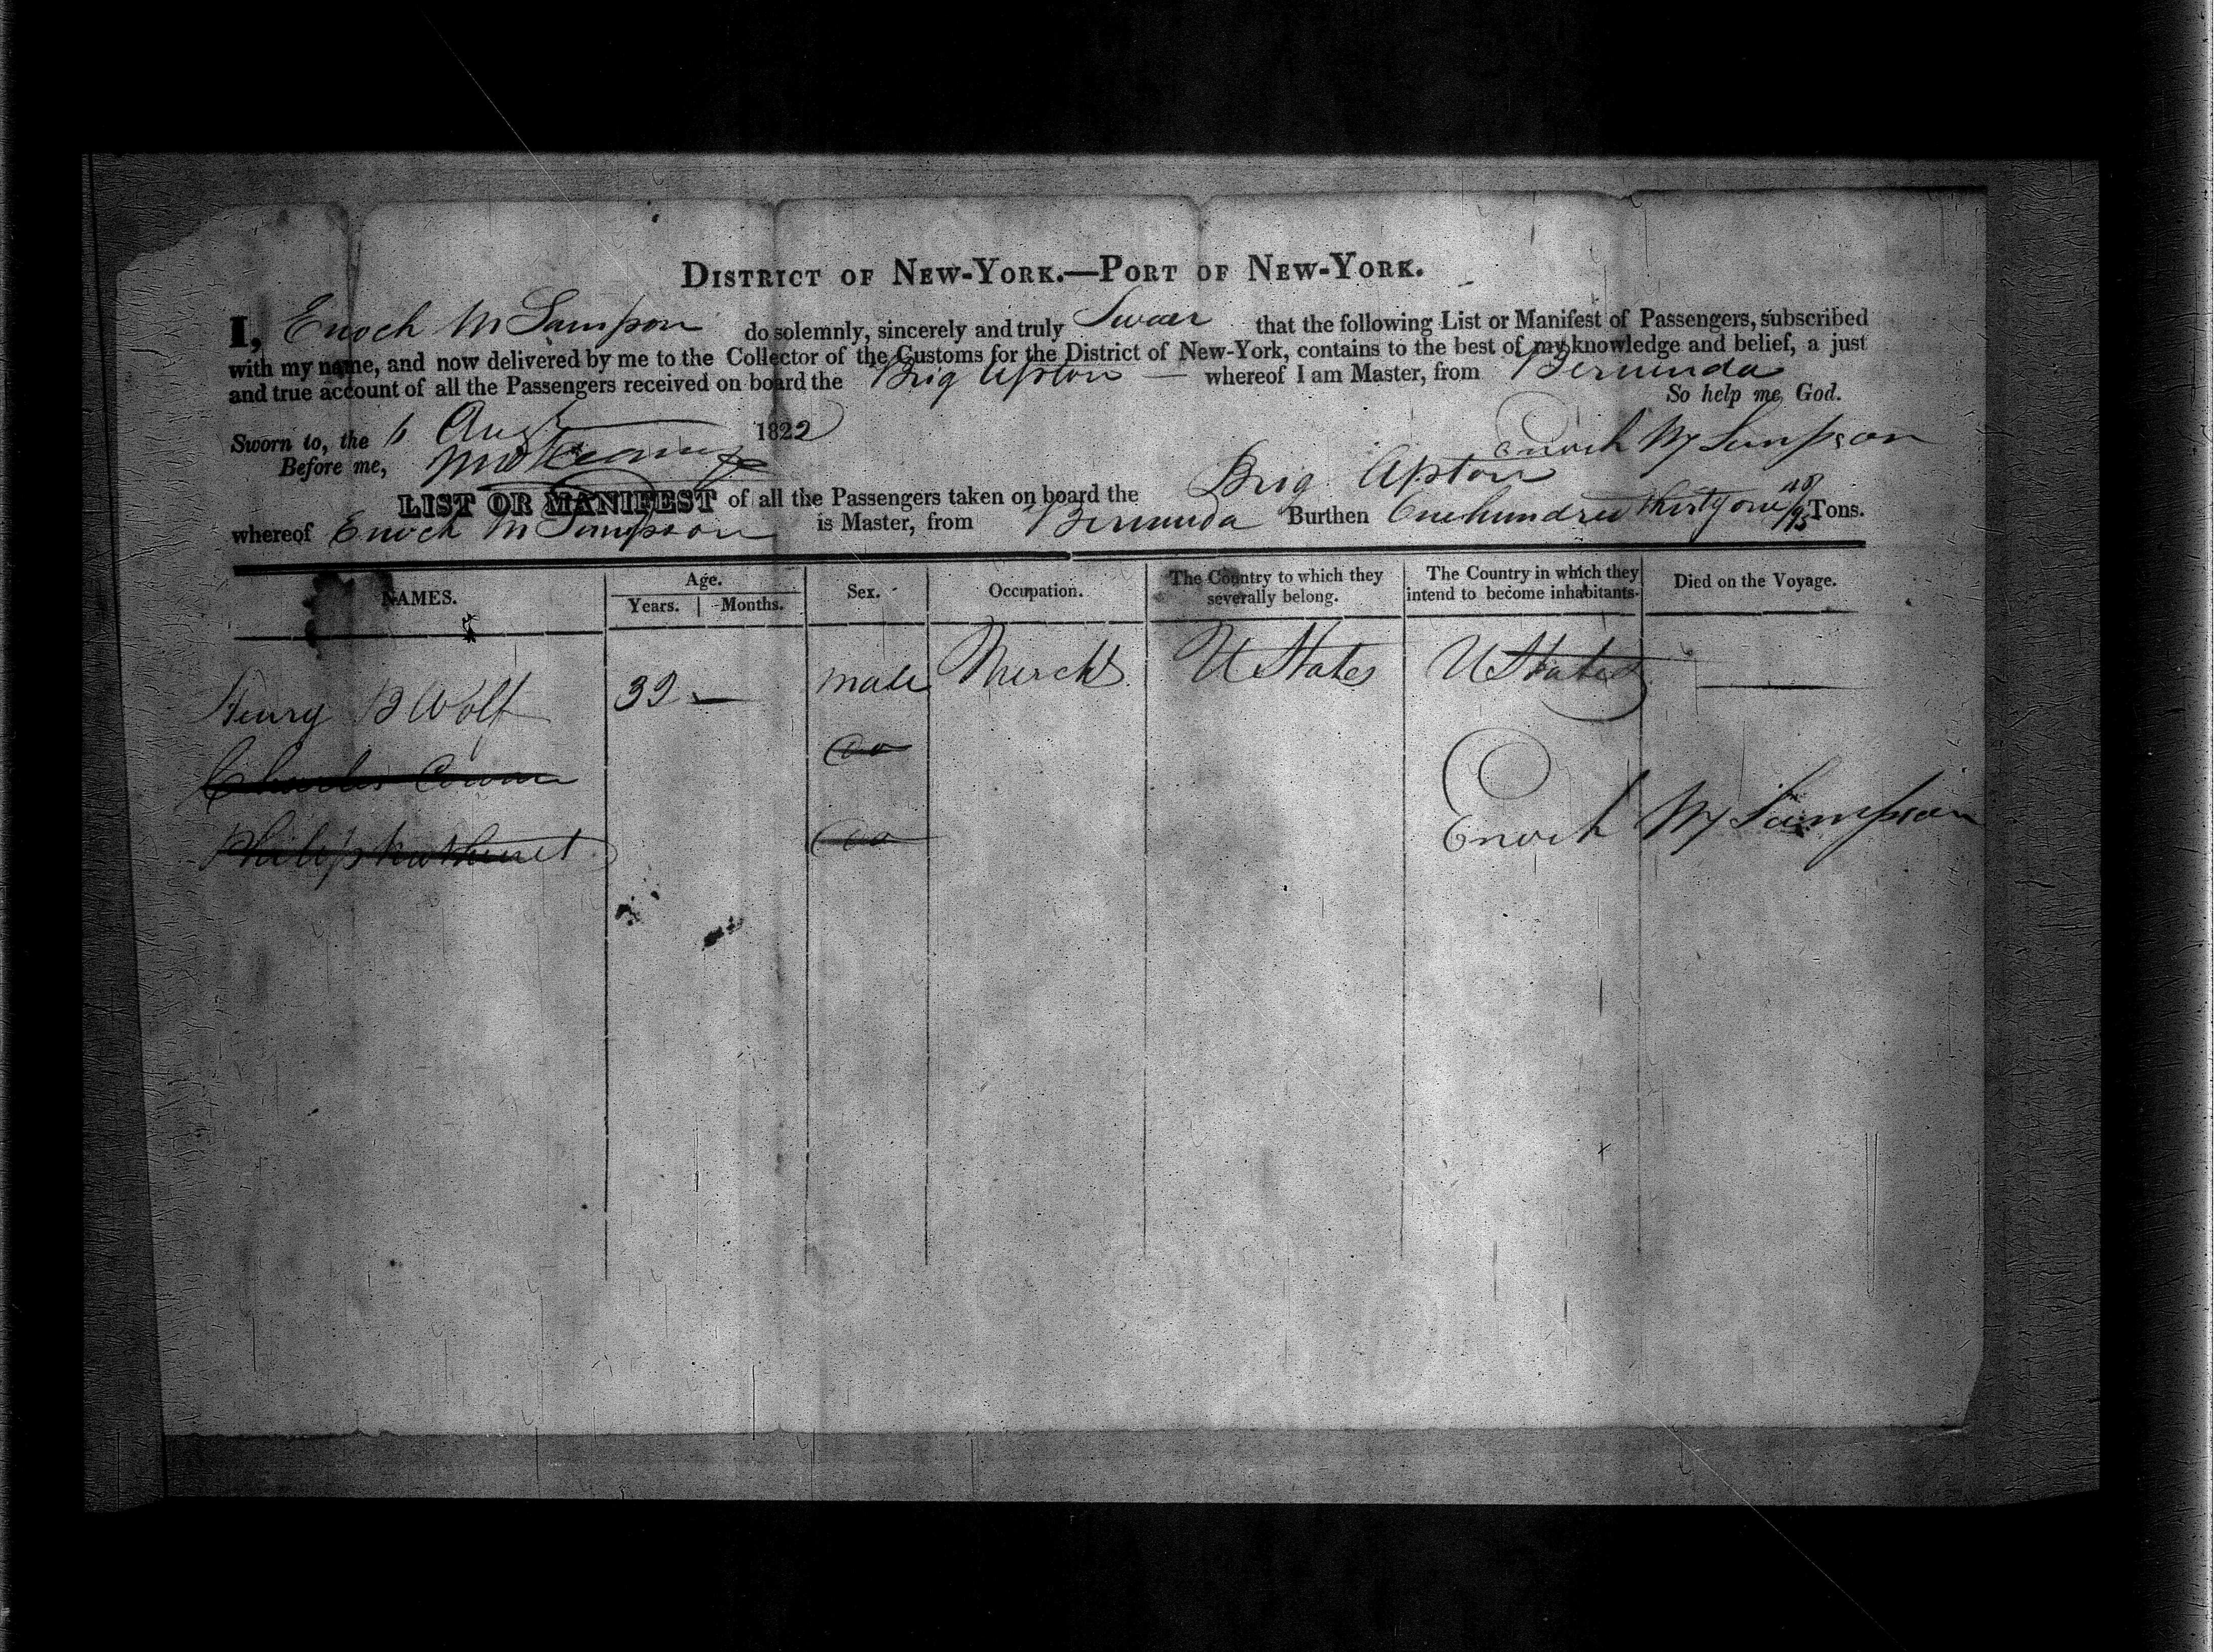 DISTRICT OF NEW-YORK.—PORT OF NEW-YORK.
I, Enoch M Sampson do solemnly, sincerely and truly Swear that the following List or Manifest of Passengers, subscribed
with my name, and now delivered by me to the Collector of the Customs for the District of New-York, contains to the best of my knowledge and belief, a just
and true account of all the Passengers received on board the Brig Upton — whereof I am Master, from Bermuda
So help me God.
Sworn to, the 6 Augt 1822
Enoch M Sampson
Before me,
LIST OR MANIFEST of all the Passengers taken on board the Brig Upton
whereof Enoch M Sampson is Master, from Bermuda Burthen One hundred thirty one /95 Tons.
NAMES. Age. Years. Months. Sex. Occupation. The Country to which they severally belong. The Country in which they intend to become inhabitants. Died on the Voyage.
Henry B Wolf 32 — male Mercht U States U States —
Charles do
Philip do
Enoch M Sampson